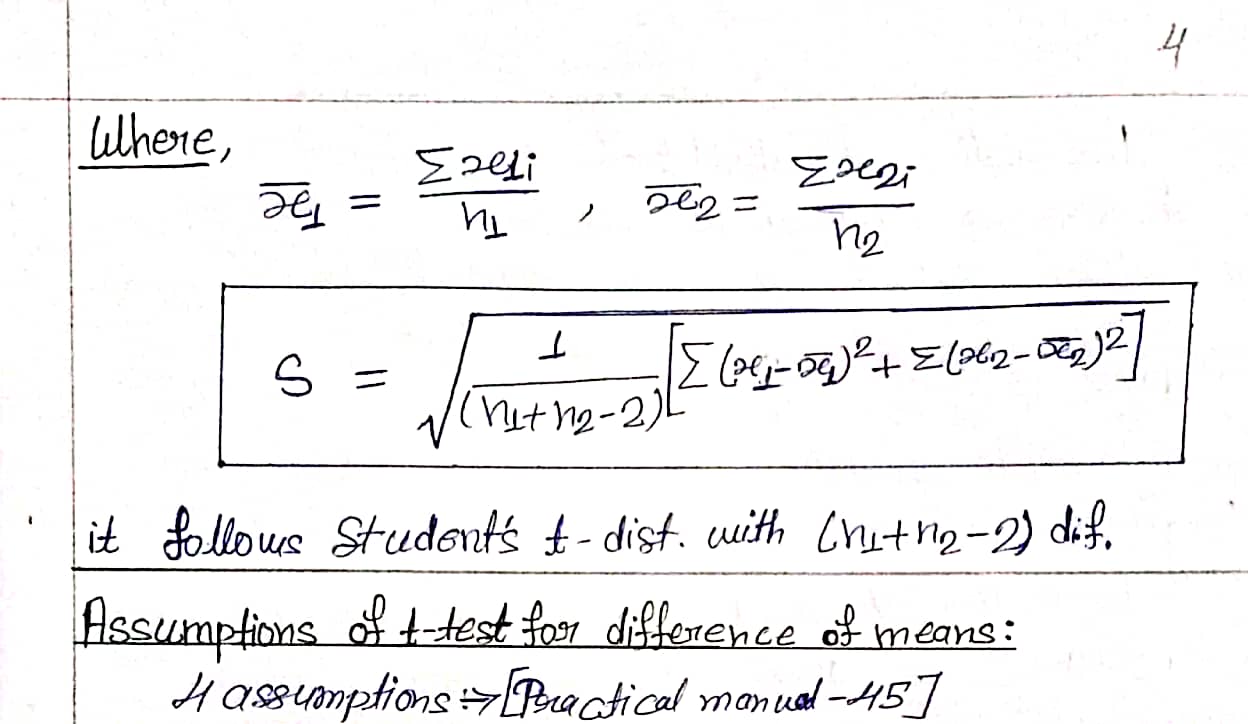 4
Where,
x̄₁ = Σx₁i / n₁ , x̄₂ = Σx₂i / n₂
S = √(1/(n₁+n₂-2) [Σ(x₁-x̄₁)²+Σ(x₂-x̄₂)²])
it follows Student's t-dist. with (n₁+n₂-2) d.f.
Assumptions of t-test for difference of means:
4 assumptions ⇒ [Practical manual-45]